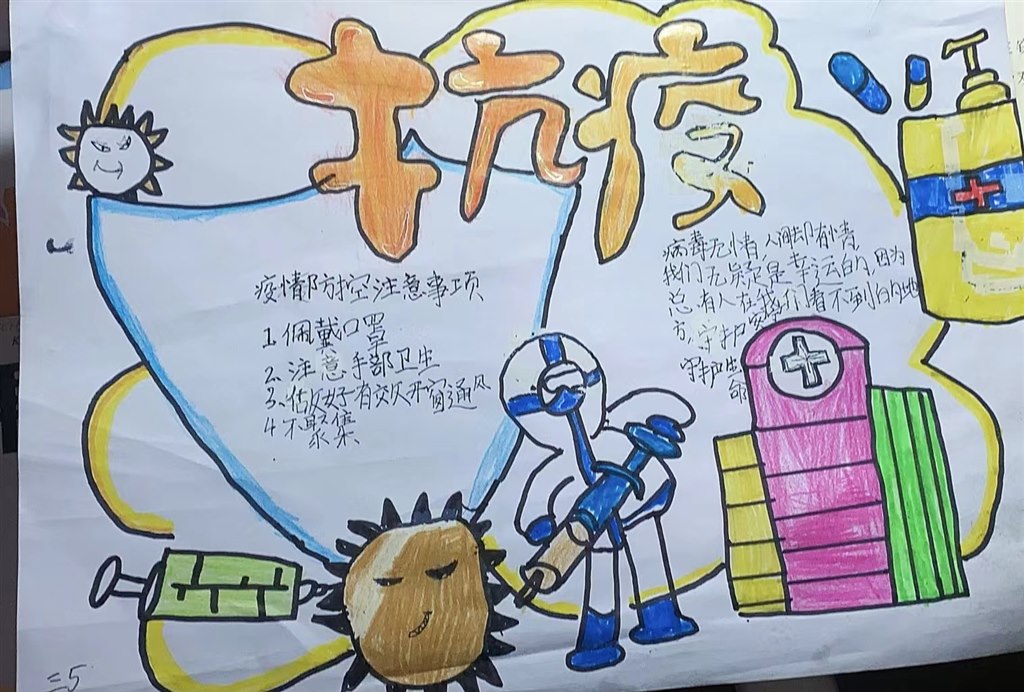 抗疫
疫情防控注意事项
1.佩戴口罩
2.注意手部卫生
3.做好有效开窗通风
4.不聚集
病毒无情,人间却有情,
我们无疑是幸运的,因为
总有人在我们看不到的地
方,守护安
守护生
命
三5